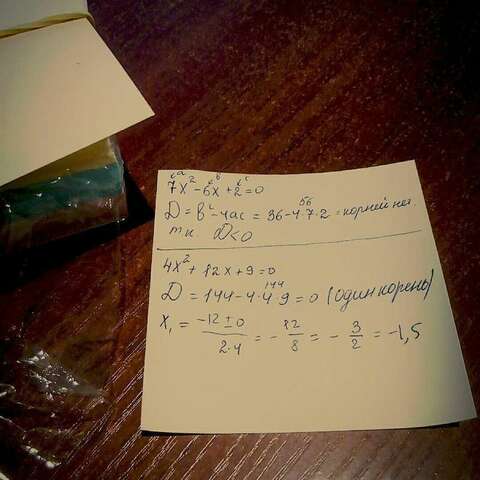 a b c
7x² - 6x + 2 = 0
56
D = b² - 4ac = 36 - 4·7·2 = корней нет
т.к. D < 0
4x² + 12x + 9 = 0
144
D = 144 - 4·4·9 = 0 (один корень)
x₁ = (-12 ± 0)/(2·4) = - 12/8 = - 3/2 = -1,5